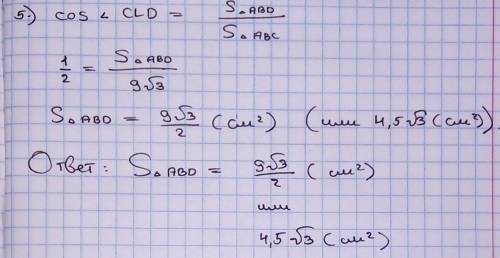 5.) cos ∠ CLD = S△ABD / S△ABC
1/2 = S△ABD / 9√3
S△ABD = 9√3/2 (см²) (или 4,5√3 (см²))
Ответ: S△ABD = 9√3/2 (см²)
или
4,5√3 (см²)